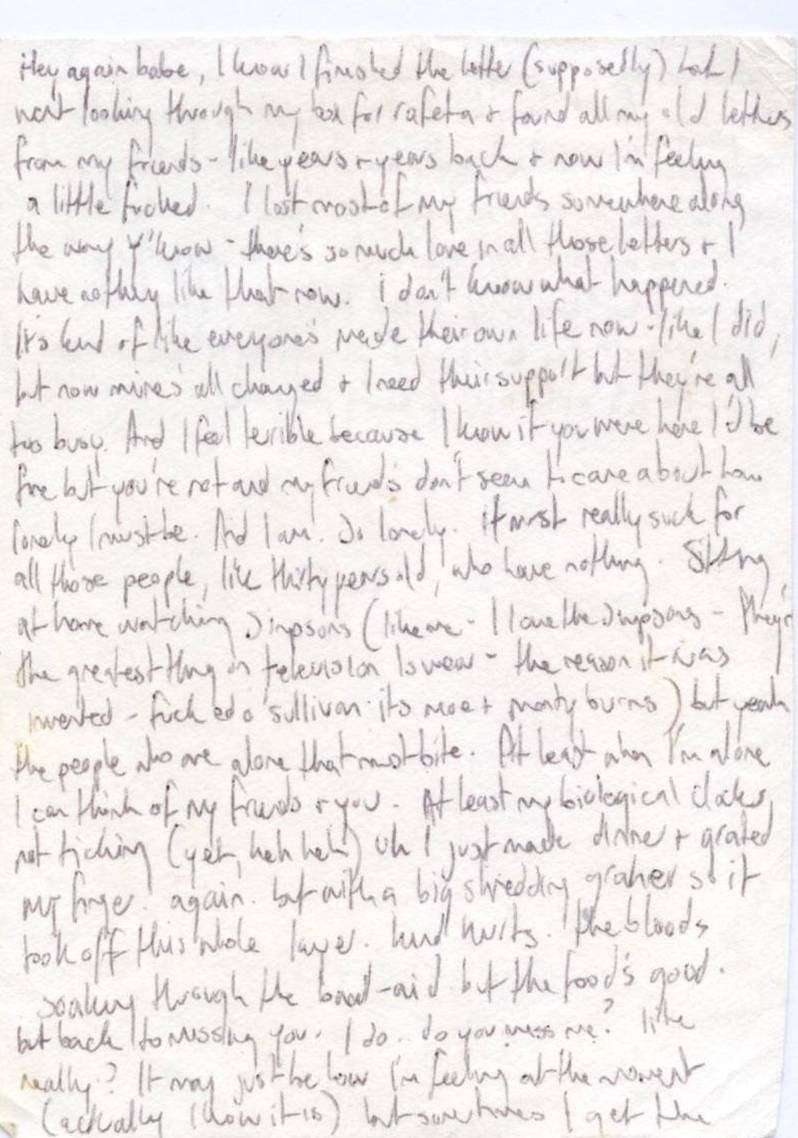 Hey again babe, I know I finished the letter (supposedly) but I
went looking through my box for rafeta + found all my old letters
from my friends - like years + years back + now I'm feeling
a little fucked. I lost most of my friends somewhere along
the way y'know - there's so much love in all those letters + I
have nothing like that now. i don't know what happened.
It's kind of like everyone's made their own life now - like I did,
but now mine's all changed + I need their support but they're all
too busy. And I feel terrible because I know if you were here I'd be
fine but you're not and my friends don't seem to care about how
lonely I must be. And I am. So lonely. it must really suck for
all those people, like thirty years old, who have nothing. Sitting
at home watching Simpsons (like me - I love the Simpsons - they're
the greatest thing on television I swear - the reason it was
invented - fuck ed o'sullivan its moe + monty burns) but yeah
the people who are alone that must bite. At least when I'm alone
I can think of my friends + you. At least my biological clocks
not ticking (yet, heh heh) uh I just made dinner + grated
my finger. again. but with a big shredding grater so it
took off this whole layer. kind hurts. the bloods
soaking through the band-aid but the food's good.
but back to missing you. I do. do you miss me? like
really? It may just be how I'm feeling at the moment
(actually I know it is) but sometimes I get the